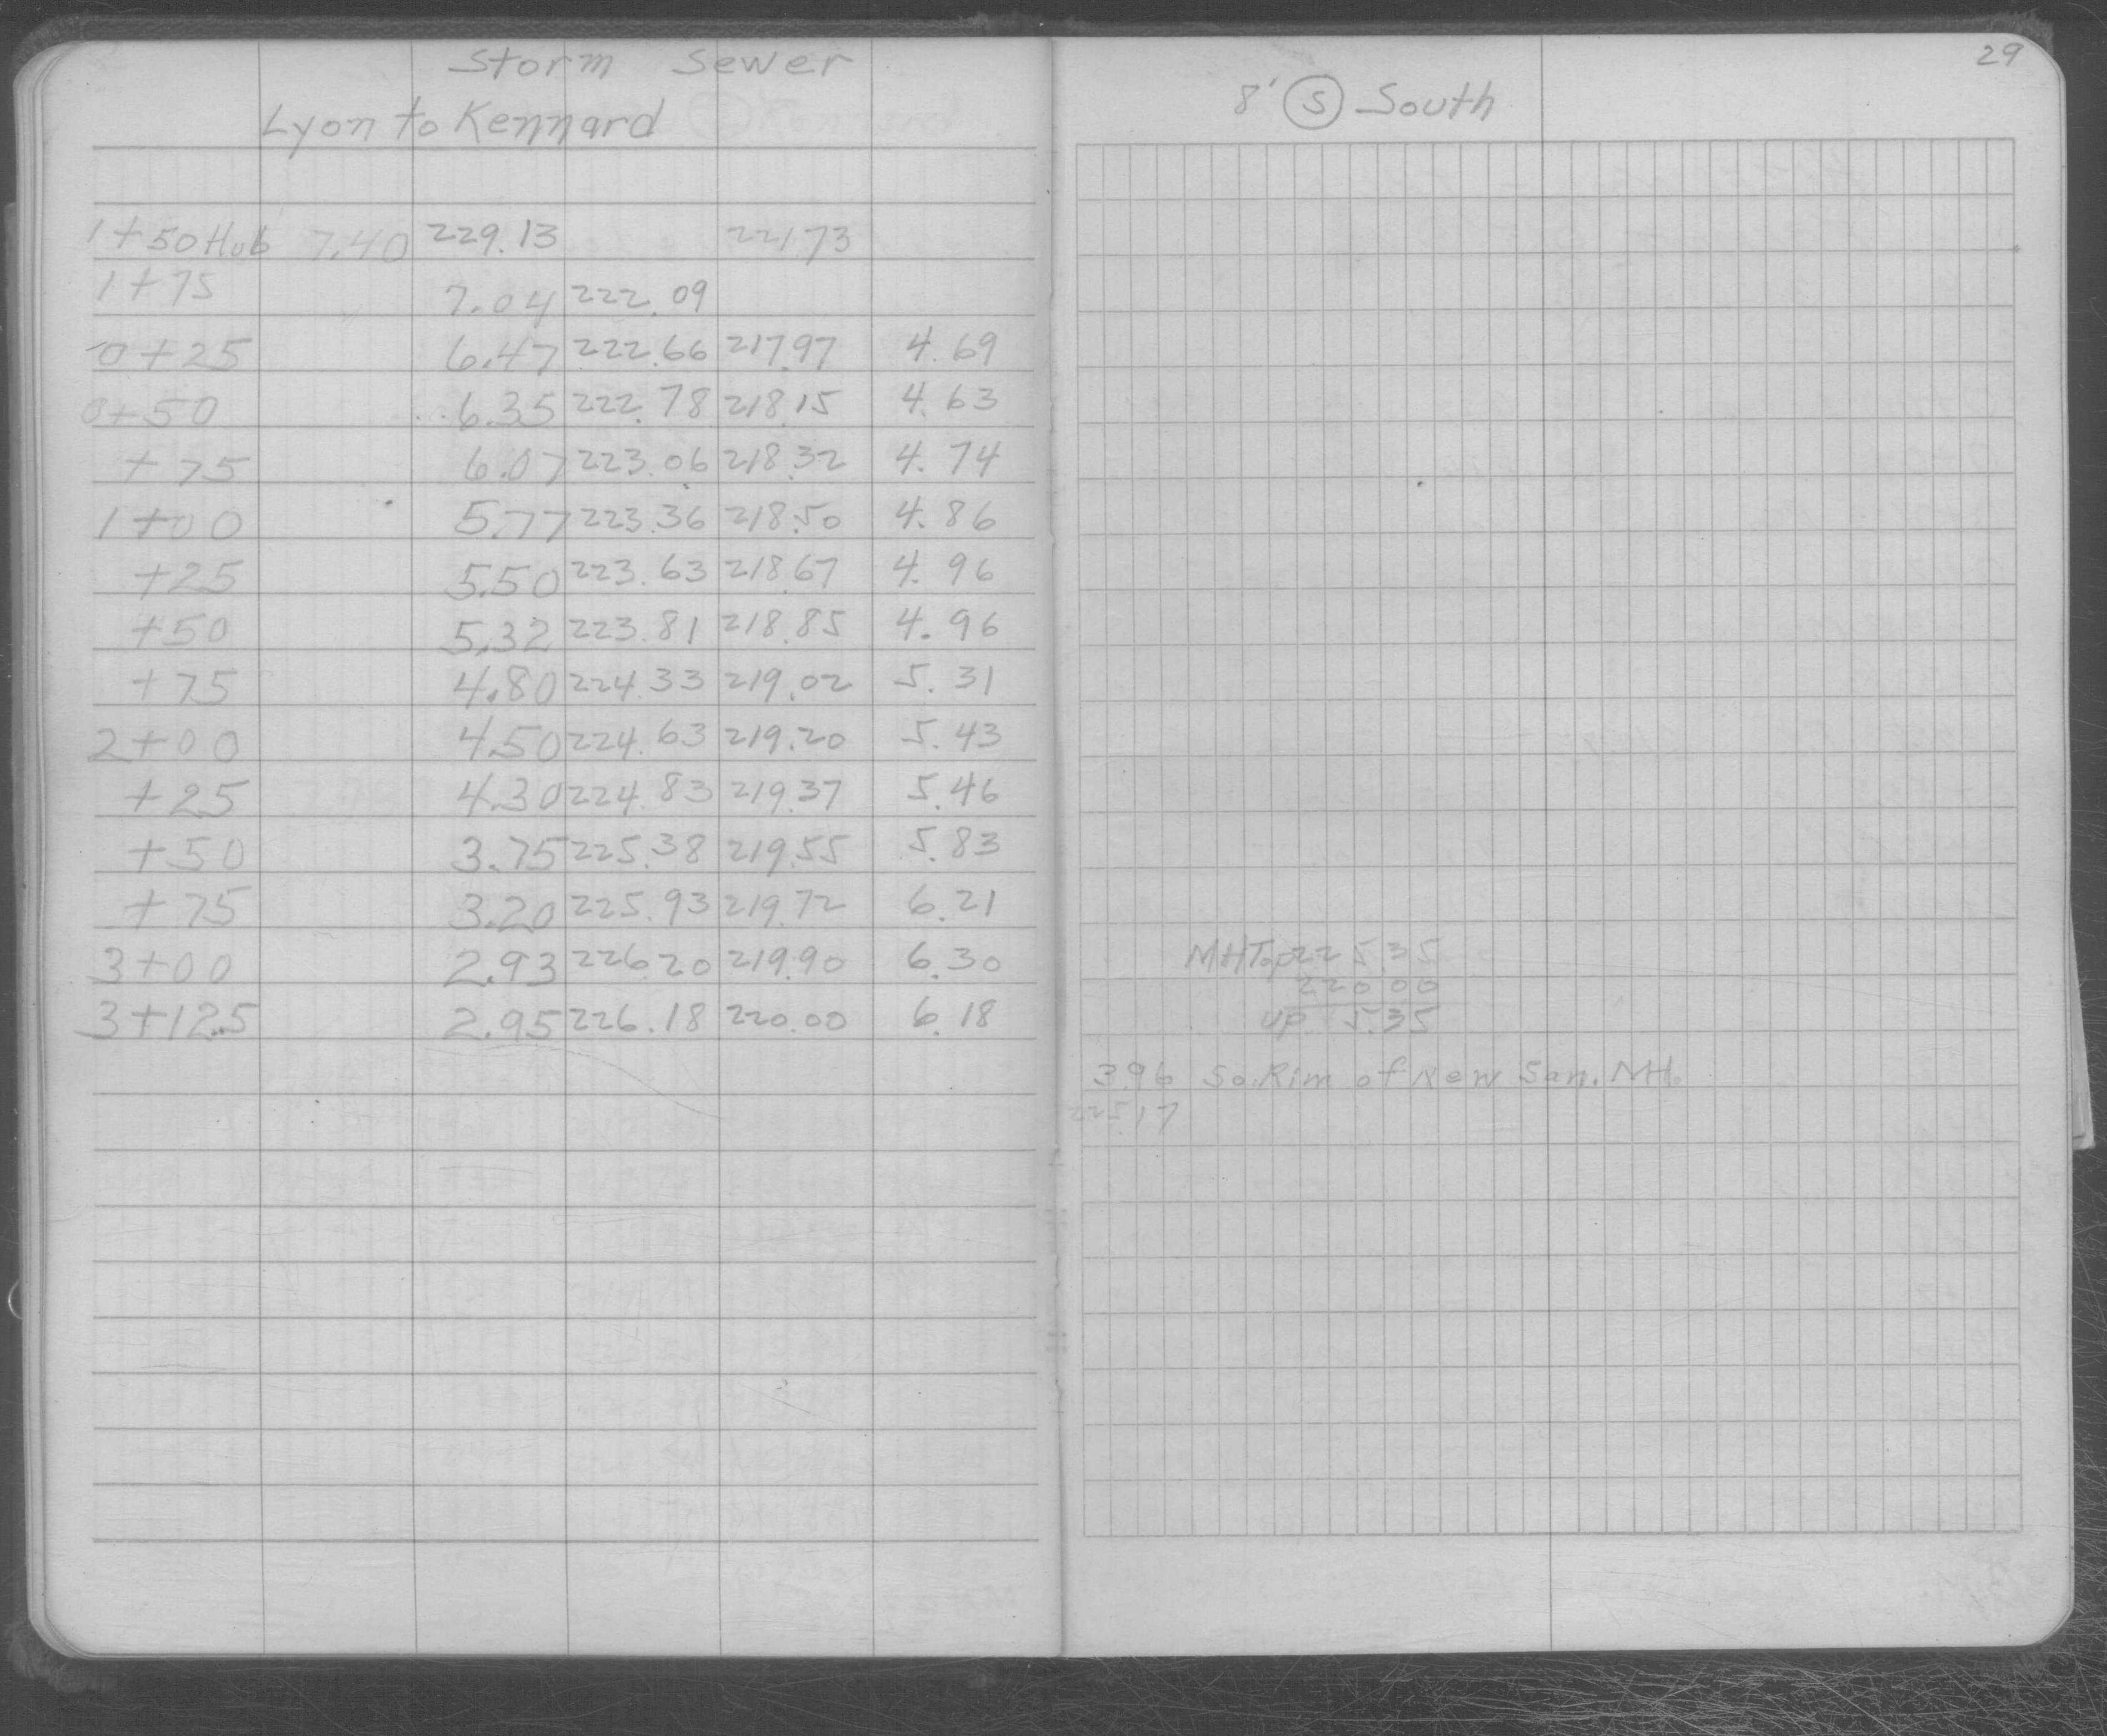 Storm Sewer
Lyon to Kennard
1+50 Hub 7.40 229.13 221.73
1+75 7.04 222.09
0+25 6.47 222.66 217.97 4.69
0+50 6.35 222.78 218.15 4.63
+75 6.07 223.06 218.32 4.74
1+00 5.77 223.36 218.50 4.86
+25 5.50 223.63 218.67 4.96
+50 5.32 223.81 218.85 4.96
+75 4.80 224.33 219.02 5.31
2+00 4.50 224.63 219.20 5.43
+25 4.30 224.83 219.37 5.46
+50 3.75 225.38 219.55 5.83
+75 3.20 225.93 219.72 6.21
3+00 2.93 226.20 219.90 6.30
3+12.5 2.95 226.18 220.00 6.18
29
8' S South
MH Top 225.35
220.00
up 5.35
3.96 So. Rim of New San. MH.
225.17